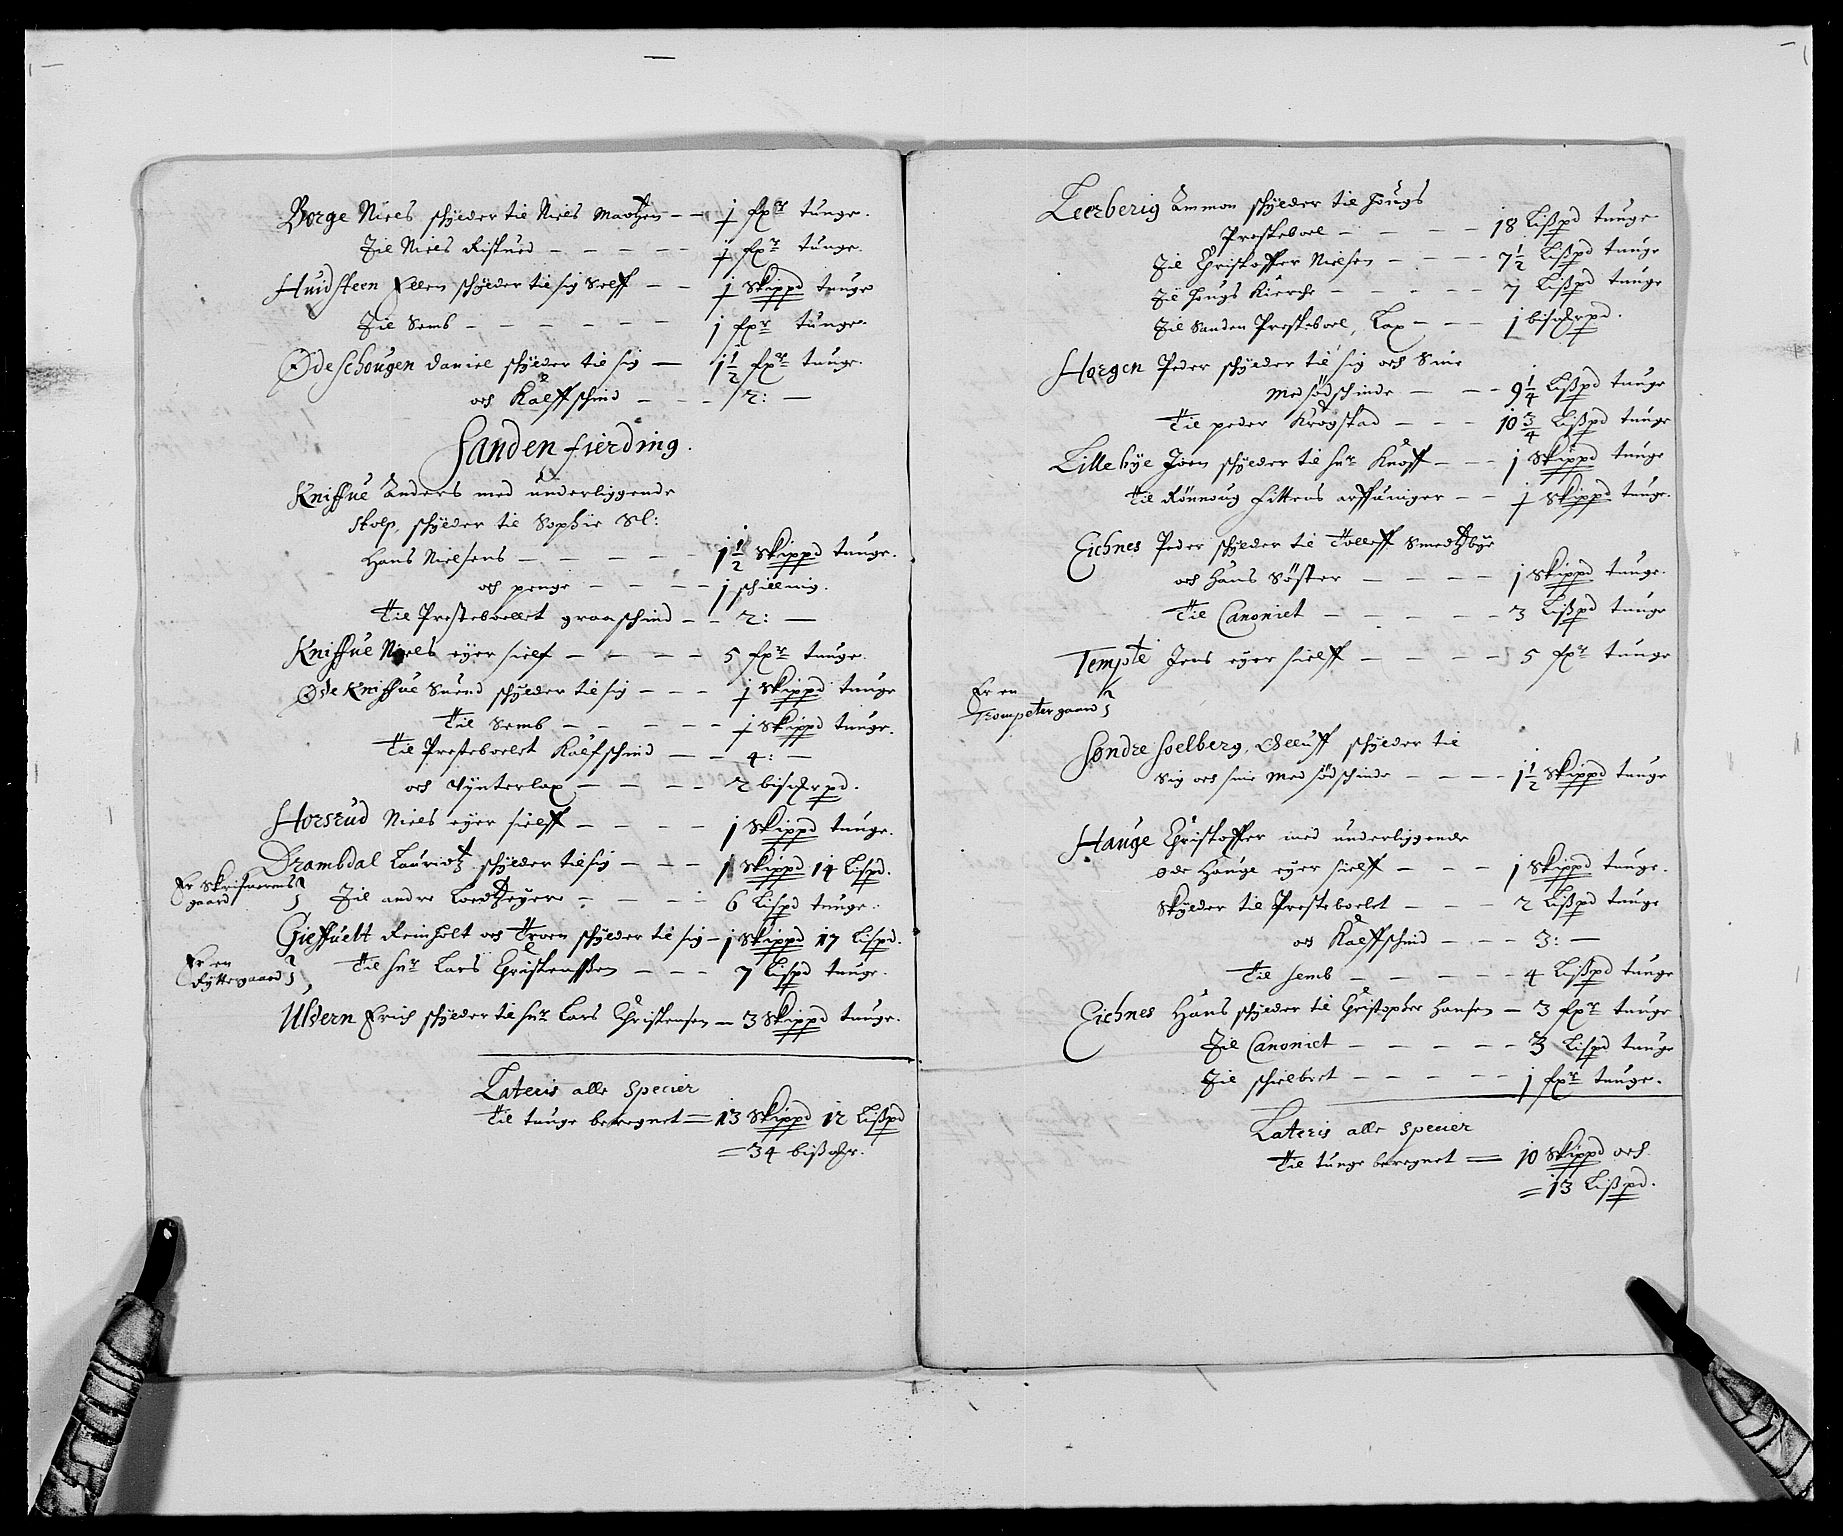 Borge Niels schylder til Niels Madtzen – – j fxr tunge.
Til Niels Ristued – – – – – j fxr tunge.
Huidsteen Ellen schylder til sig Selff – – j Skippd tunge
Til Semb – – – – – – j fxr tunge.
Øde schougen Daniel schylder til sig – 1½ fxr tunge.
och Kalffschind – – – 2: –
Sanden fierding.
Kniffue Anders med underliggende
Skolp, schylder til Sophie Sl:
Hans Nielsens – – – – – 1½ Skippd tunge.
och penge – – – – j schilling.
Til Presteboellet graaschind – – 2: –
Kniffue Niels eyer sielf – – – – 5 fxr tunge.
Øde Kniffue Suend schylder til sig – – – j Skippd tunge
Til Semb – – – – – j Skippd tunge.
Til Presteboelet Kalfschind – – 4: –
och Vynterlax – – – – 2 bismrpd.
Horsrud Niels eyer sielff – – – – 1 Skippd tunge.
Drambdal Lauridtz schylder til sig – – – 1 Skippd 14 Lispd.
Er Skrifuerens
gaard
Til andre Loedtzeyere – – – – 6 Lispd tunge.
Gieffuelt Reinholt och Troen schylder til sig – 1 Skippd 17 Lispd.
Er en
Ryttergaard
Til hr Lars Christenssen – – – 7 Lispd tunge.
Ulvern Erich schylder til hr Lars Christensen – 3 Skippd tunge.
Lateris alle Specier
Til tunge beregnet = 13 Skippd 12 Lißpd
= 34 bißmr.
Leerberig Ammon schylder til Hougs
Presteboel – – – – 18 Lißpd tunge
Til Christoffer Nielsen – – – 7½ Lißpd tunge
Til Hougs Kierche – – – – – 7 Lißpd tunge
Til Sanden Presteboel, Lax – – – 1 bismrpd.
Horgen Peder schylder til sig och Sine
Medsødschinde – – – 9¼ Lißpd tunge
Til peder Krogstad – – – 10¾ Lißpd tunge
Lillebye Joen schylder til hr Knoff – – – j Skippd tunge
Til Rønnoug Fittens arffuinger – – j Skippd tunge.
Eichnes Peder schylder til Tolleff Smedtzbye
och Hans Søster – – – – 1 Skippd tunge.
Til Canoniet – – – – – 3 Lißpd tunge
Tempte Jens eyer sielff – – – – 5 fxr tunge
Er en
Trompetergaard
Søndre Soelberg, Oelluff schylder til
Sig och sine Medsødschinde – – – – 1½ Skippd tunge
Hauge Christoffer med underliggende
øde Hauge eyer sielff – – – j Skippd tunge.
Skylder til Presteboelet – – – 2 Lißpd tunge
och Kalffschind – – – 3: –
Til Semb – – – – – 4 Lißpd tunge
Eichnes Hans schylder til Christopher Hansen – 3 fxr tunge
Til Canoniet – – – – – 3 Lispd tunge
Til schielbret – – – – – j fxr tunge.
Lateris alle Specier
Til tunge beregnet = 10 Skippd och
= 13 Lißpd.